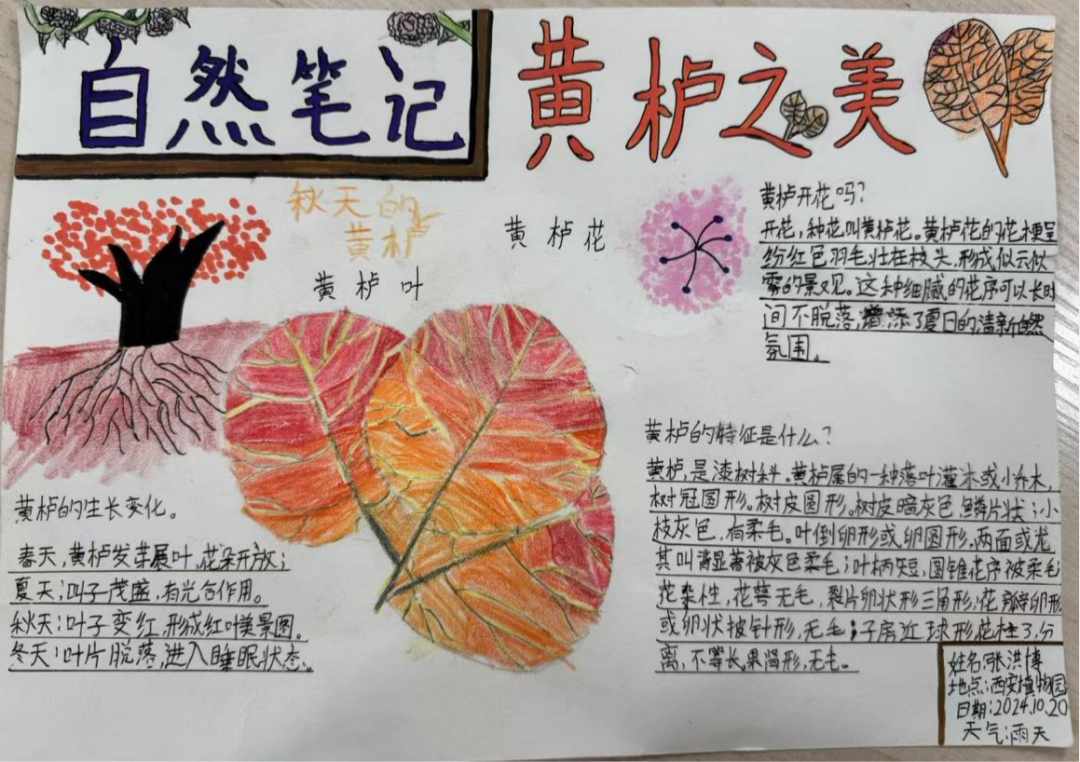 自然笔记
黄栌之美
秋天的
黄栌
黄栌叶
黄栌花
黄栌开花吗？
开花，种花叫黄栌花。黄栌花的花梗呈
纷红色羽毛壮在枝头，形成似云似
雾的景观。这种细腻的花序可以长时
间不脱落，增添了夏日的清新自然
氛围。
黄栌的特征是什么？
黄栌，是漆树科。黄栌属的一种落叶灌木或小乔木，
树冠圆形。树皮圆形。树皮暗灰色，鳞片状；小
枝灰色，有柔毛。叶倒卵形或卵圆形，两面或尤
其叫背显著被灰色柔毛；叶柄短，圆锥花序被柔毛
花杂性，花萼无毛，裂片卵状形三角形，花瓣卵形
或卵状披针形，无毛；子房近球形，花柱3，分
离，不等长，果肾形，无毛。
黄栌的生长变化。
春天，黄栌发芽展叶，花朵开放；
夏天：叫子茂盛，有光合作用。
秋天：叶子变红，形成红叶美景图。
冬天：叶片脱落，进入睡眠状态。
姓名：张洪博
地点：西安植物园
日期：2024.10.20
天气：雨天